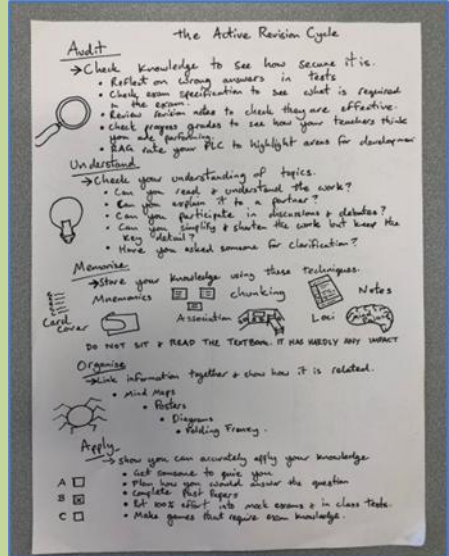 the Active Revision Cycle
Audit
→ Check knowledge to see how secure it is.
• Reflect on wrong answers in tests
• Check exam specification to see what is required
in the exam.
• Review revision notes to check they are effective.
• Check progress grades to see how your teachers think
you are performing.
• RAG rate your PLC to highlight areas for development
Understand
→ Check your understanding of topics.
• Can you read & understand the work?
• Can you explain it to a partner?
• Can you participate in discussions & debates?
• Can you simplify & shorten the work but keep the
key detail?
• Have you asked someone for clarification?
Memorise
→ Store your knowledge using these techniques.
Mnemonics chunking Notes
Card
Cover Association Loci
DO NOT SIT & READ THE TEXTBOOK. IT HAS HARDLY ANY IMPACT
Organise
→ Link information together & show how it is related.
• Mind Maps
• Posters
• Diagrams
• Folding
Apply
→ Show you can accurately apply your knowledge
• Get someone to quiz you
A • Plan how you would answer the question
B • Complete Past Papers
• Put 100% effort into mock exams & in class tests.
C • Make games that require exam knowledge.